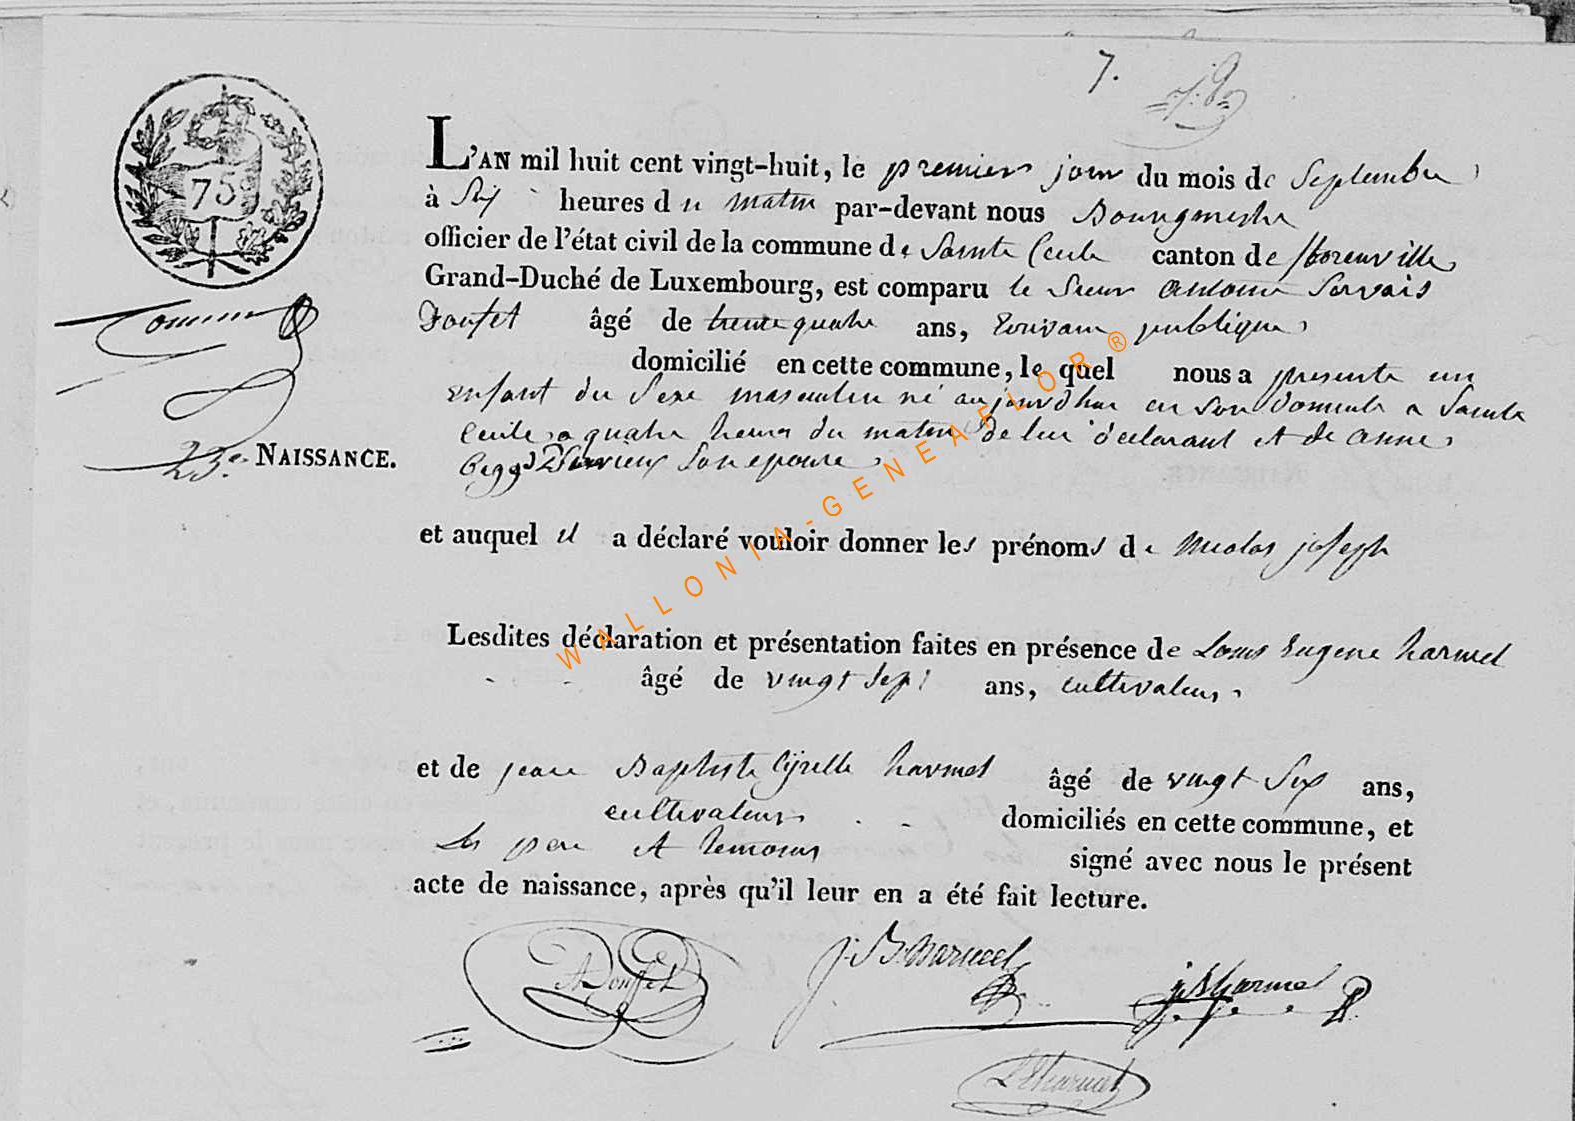 7.
75
L'AN mil huit cent vingt-huit, le premier jour du mois de Septembre
à Six heures du matin par-devant nous Bourgmestre
officier de l'état civil de la commune de Sainte Cecile canton de florenville
Grand-Duché de Luxembourg, est comparu le Sieur Antoine Servais
Donfet âgé de trente quatre ans, Ecrivain publique
domicilié en cette commune, le quel nous a presenté un
enfant du Sexe masculin né aujourdhui en Son domicile a Sainte
Cecile a quatre heures du matin de lui declarant et de anne
Begge Son epouse
23e NAISSANCE.
et auquel il a déclaré vouloir donner les prénoms de Nicolas joseph
Lesdites déclaration et présentation faites en présence de Louis Eugene harmel
âgé de vingt Sept ans, cultivateur,
et de jean Baptiste Cyrille harmel âgé de vingt Six ans,
cultivateur domiciliés en cette commune, et
Les pere et temoins signé avec nous le présent
acte de naissance, après qu'il leur en a été fait lecture.
A Donfet
J. B. Harmel
jBharmel
LEharmel
WALLONIA-GENEAFLOR®